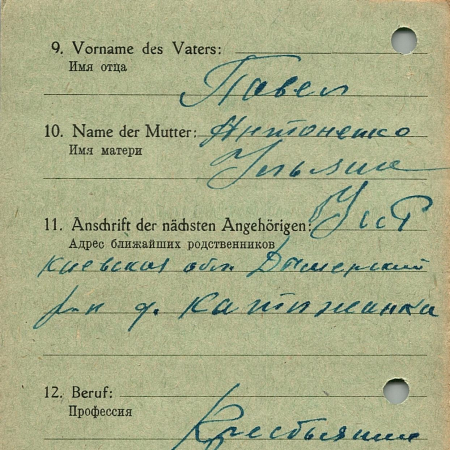 9. Vorname des Vaters:
Имя отца
Павел
10. Name der Mutter: Антоненко
Имя матери
Ульяна
11. Anschrift der nächsten Angehörigen: УССР
Адрес ближайших родственников
Киевская обл. Дымерский
р-н д. Катюжанка
12. Beruf:
Профессия
Крестьянин